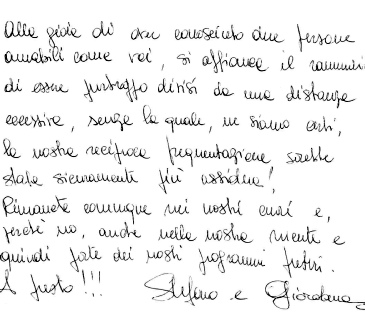 Alla gioia di aver conosciuto due persone
amabili come voi, si affianca il rammari
di essere purtroppo divisi da una distanza
eccessiva, senza la quale, ne siamo certi,
la nostra reciproca frequentazione sarebbe
stata sicuramente più assidua!
Rimanete comunque nei nostri cuori e,
perché no, anche nella nostra mente e
quindi fate dei nostri programmi futuri.
A presto!!! Stefano e Giordana